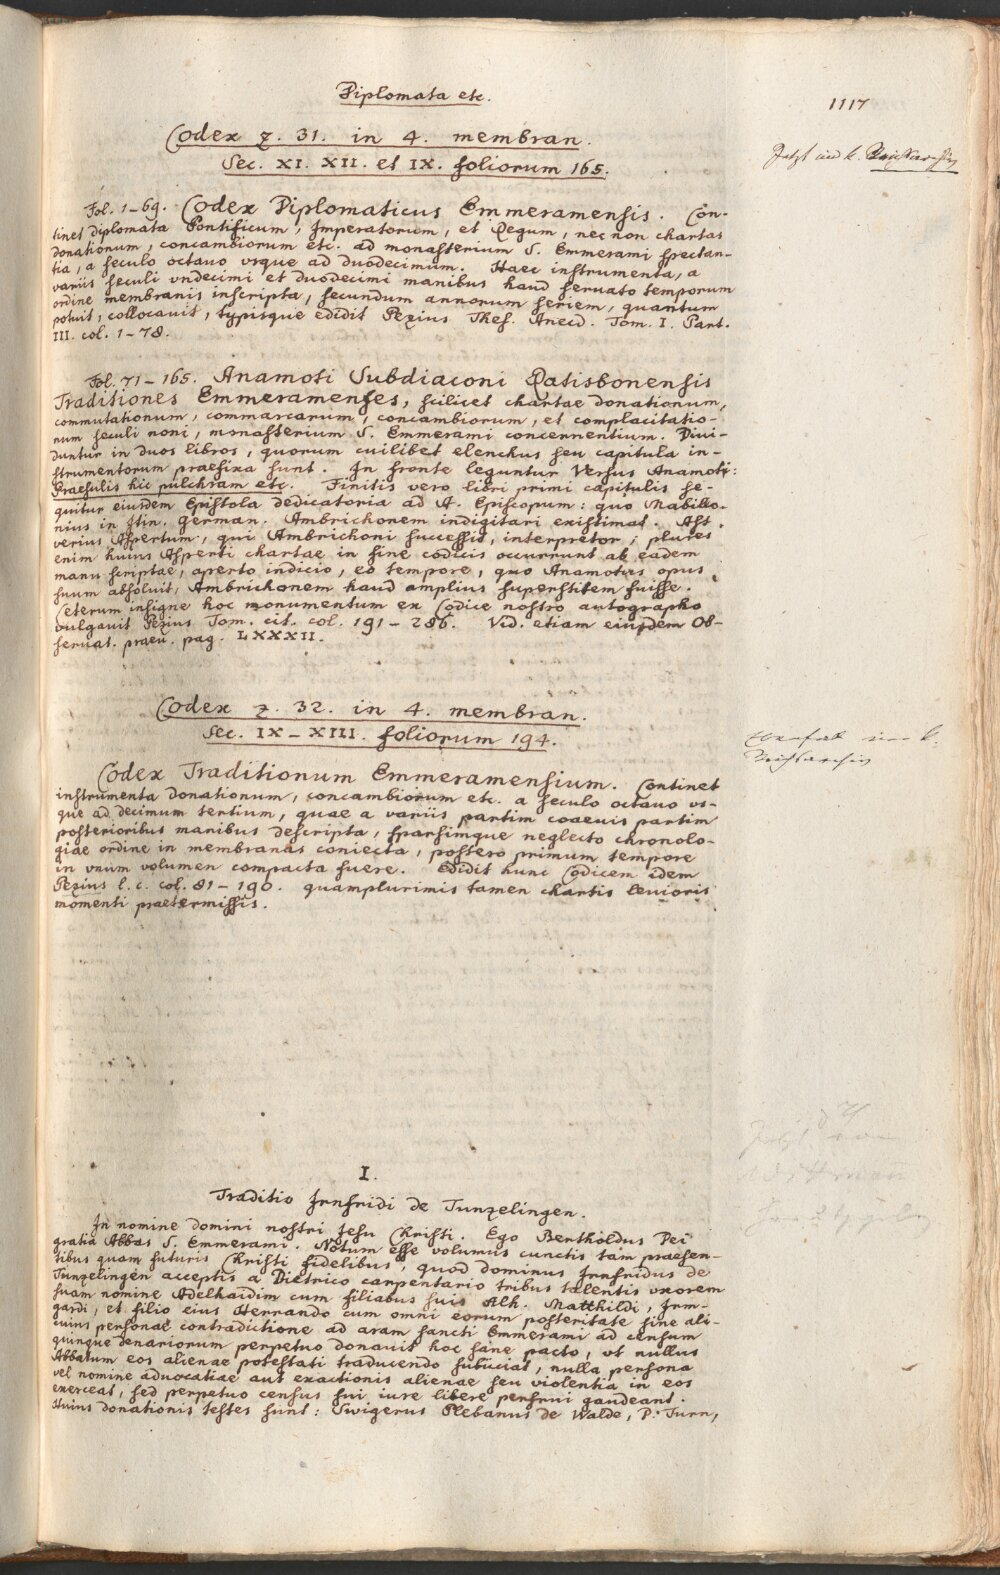 Diplomata etc.
1117
Codex z. 31. in 4. membran.
Sec. XI. XII. et IX. foliorum 165.
Jetzt im k. Reichsarchiv
Fol. 1-69. Codex Diplomaticus Emmeramensis. Con-
tinet diplomata Pontificum, Imperatorum, et Regum, nec non chartas
donationum, concambiorum etc. ad monasterium S. Emmerami spectan-
tia, a seculo octavo vsque ad duodecimum. Haec instrumenta, a
variis seculi vndecimi et duodecimi manibus haud servato temporum
ordine membranis inscripta, secundum annorum seriem, quantum
potuit, collocauit, typisque edidit Pezius Thes. Anecd. Tom. I. Part.
III. col. 1-78.
Fol. 71-165. Anamoti Subdiaconi Ratisbonensis
Traditiones Emmeramenses, scilicet chartae donationum,
commutationum, commarcarum, concambiorum, et complacitatio-
num seculi noni, monasterium S. Emmerami concernentium. Diui-
duntur in duos libros, quorum cuilibet elenchus seu capitula in-
strumentorum praefixa sunt. In fronte leguntur Versus Anamoti:
Praesulis hic pulchram etc. Finitis vero libri primi capitulis se-
quitur eiusdem Epistola dedicatoria ad A. Episcopum: quo Mabillo-
nius in Itin. German. Ambrichonem indigitari existimat. Ast
verius Aspertum, qui Ambrichoni successit, interpretor; plures
enim huius Asperti chartae in fine codicis occurrunt ab eadem
manu scriptae, aperto indicio, eo tempore, quo Anamotus opus
suum absoluit, Ambrichonem haud amplius superstitem fuisse.
Ceterum insigne hoc monumentum ex Codice nostro autographo
vulgauit Pezius Tom. cit. col. 191-286. Vid. etiam eiusdem Ob-
seruat. praeu. pag. LXXXII.
Codex z. 32. in 4. membran.
Sec. IX-XIII. foliorum 194.
Ebenfals im k.
Reichsarchiv
Codex Traditionum Emmeramensium. Continet
instrumenta donationum, concambiorum etc. a seculo octauo vs-
que ad decimum tertium, quae a variis partim coaevis partim
posterioribus manibus descripta, sparsimque neglecto chronolo-
giae ordine in membranas coniecta, postero primum tempore
in vnum volumen compacta fuere. Edidit hunc Codicem idem
Pezius l. c. col. 81-190. quamplurimis tamen chartis levioris
momenti praetermissis.
I.
Traditio Irnfridi de Tunzelingen.
In nomine domini nostri Jesu Christi. Ego Bertholdus Dei
gratia Abbas S. Emmerami. Notum esse volumus cunctis tam praesen-
tibus quam futuris Christi fidelibus, quod dominus Irnfridus de
Tunzelingen acceptis a Dietrico carpentario tribus talentis vxorem
suam nomine Adelhaidim cum filiabus suis Alh. Matthildi, Irm-
gardi, et filio eius Herrando cum omni eorum posteritate sine ali-
cuius personae contradictione ad aram sancti Emmerami ad censum
quinque denariorum perpetuo donauit hoc sane pacto, vt nullus
Abbatum eos alienae potestati traducendo subiiciat, nulla persona
vel nomine aduocatiae aut exactionis alienae seu violentia in eos
exerceat, sed perpetuo census sui iure libere perfrui gaudeant.
Huius donationis testes sunt: Swigerus Plebanus de Walde, P. Turn,